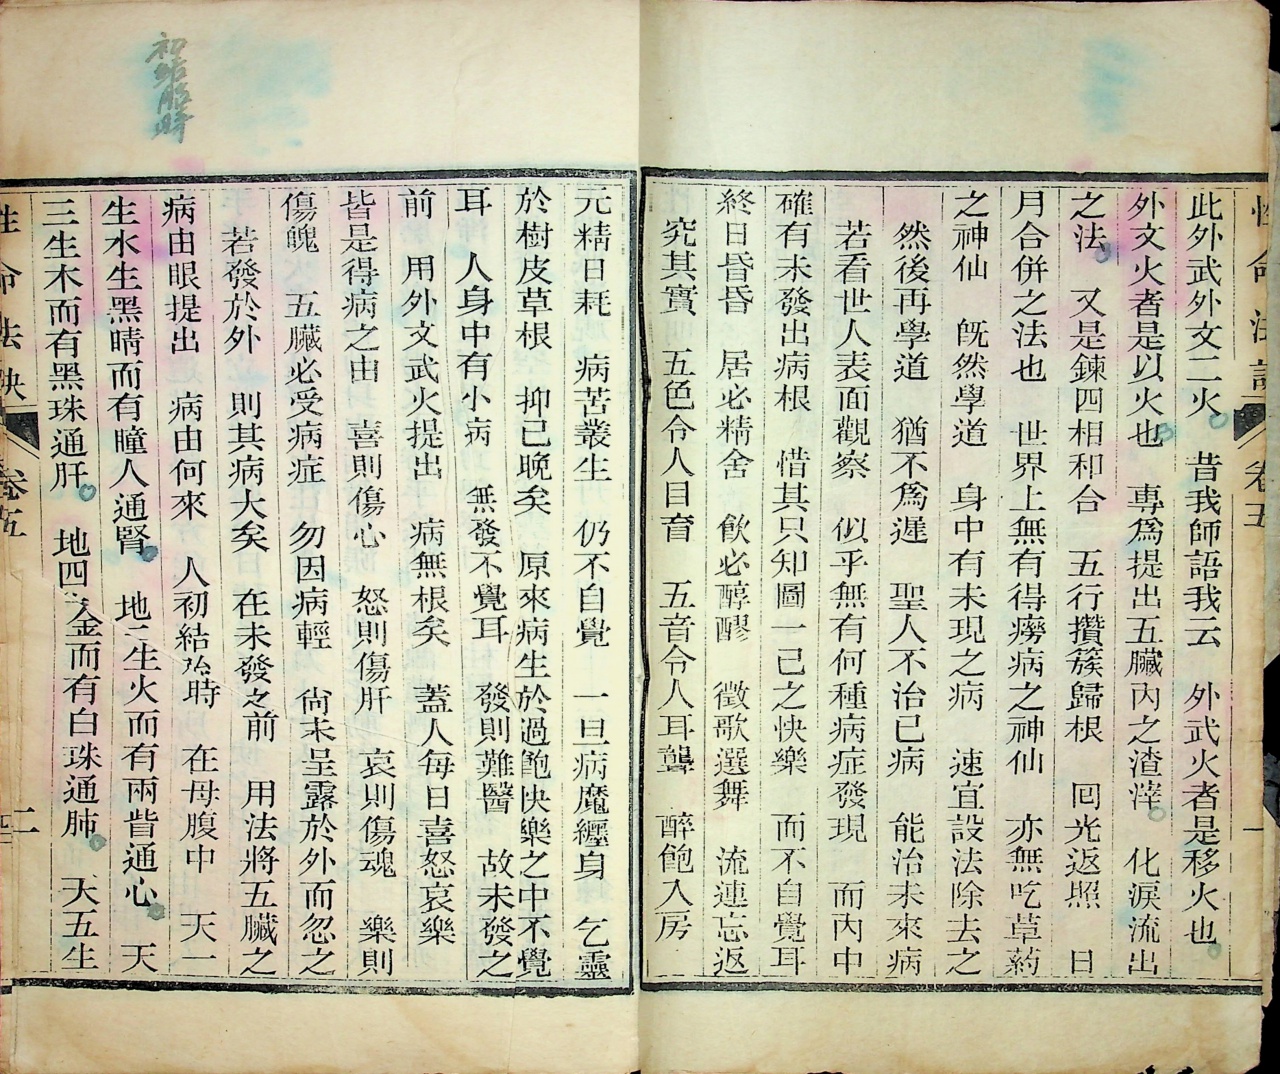 此外武外文二火　昔我師語我云　外武火者是移火也
外文火者是以火也　專爲提出五臟內之渣滓　化淚流出
之法　又是鍊四相和合　五行攢簇歸根　囘光返照　日
月合併之法也　世界上無有得癆病之神仙　亦無吃草葯
之神仙　旣然學道　身中有未現之病　速宜設法除去之
然後再學道　猶不爲遲　聖人不治已病　能治未來病
若看世人表面觀察　似乎無有何種病症發現　而內中
確有未發出病根　惜其只知圖一己之快樂　而不自覺耳
終日昏昏　居必精舍　飲必醇醪　徵歌選舞　流連忘返
究其實　五色令人目盲　五音令人耳聾　醉飽入房
元精日耗　病苦叢生　仍不自覺　一旦病魔纒身　乞靈
於樹皮草根　抑已晚矣　原來病生於過飽快樂之中不覺
耳　人身中有小病　無發不覺耳　發則難醫　故未發之
前　用外文武火提出　病無根矣　蓋人每日喜怒哀樂
皆是得病之由　喜則傷心　怒則傷肝　哀則傷魂　樂則
傷魄　五臟必受病症　勿因病輕　尙未呈露於外而忽之
若發於外　則其病大矣　在未發之前　用法將五臟之
病由眼提出　病由何來　人初結胎時　在母腹中　天一
生水生黑睛而有瞳人通腎　地二生火而有兩眥通心　天
三生木而有黑珠通肝　地四生金而有白珠通肺　天五生
性命法訣
卷五
一
初結胎時
性命法訣
卷五
二